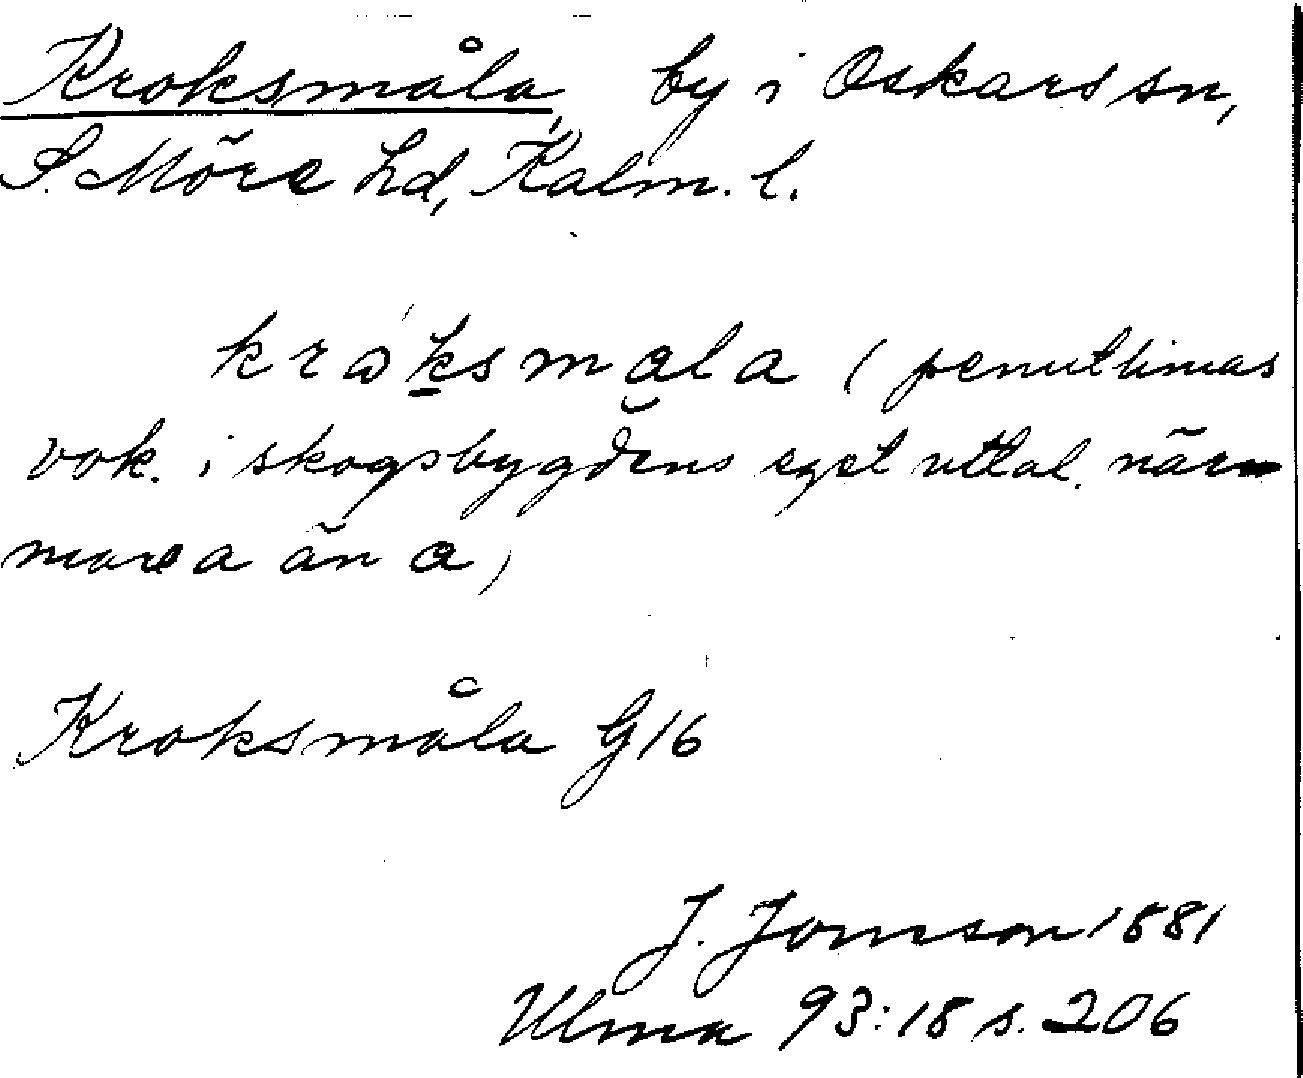 Kroksmåla, by i Oskars sn,
S. Möre hd, Kalm. l.
krɷksmala (penultimas
vok. i skogsbygdens eget uttal när-
mare a än ɑ)
Kroksmåla G 16
J. Jonsson 1881
Ulma 93:18 s. 206